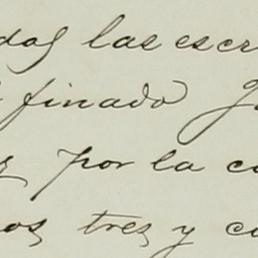 das las escri
finado J
por la co
os tres y co